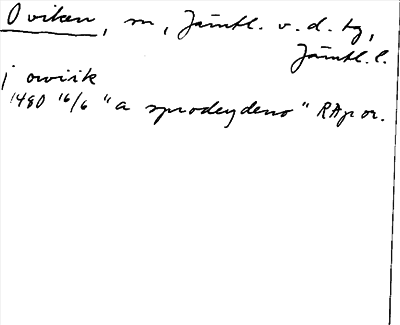 Oviken, sn, Jämtl. v. d. tg,
Jämtl. l.
j owiik
1480 16/6 "a sprodeydeno" RAp or.